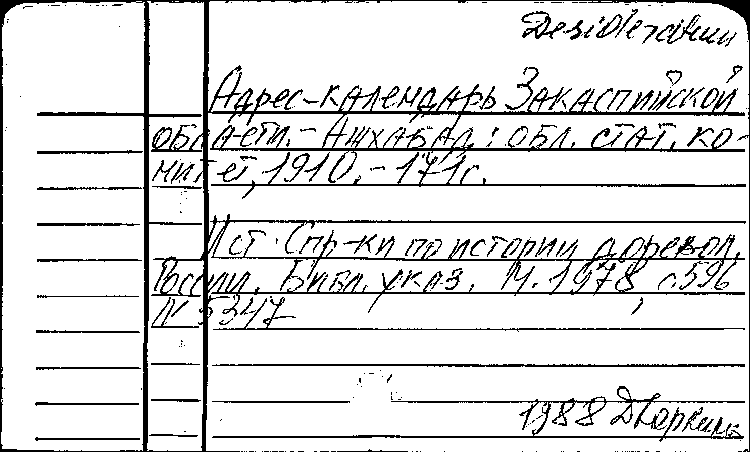 Desideratum
Адрес-календарь Закаспийской
области. - Ашхабад: обл. стат. ко-
митет, 1910. - 171 с.
Ист. Спр-ки по истории доревол.
России. Библ. указ. М. 1978, с.596
N 5347
1988